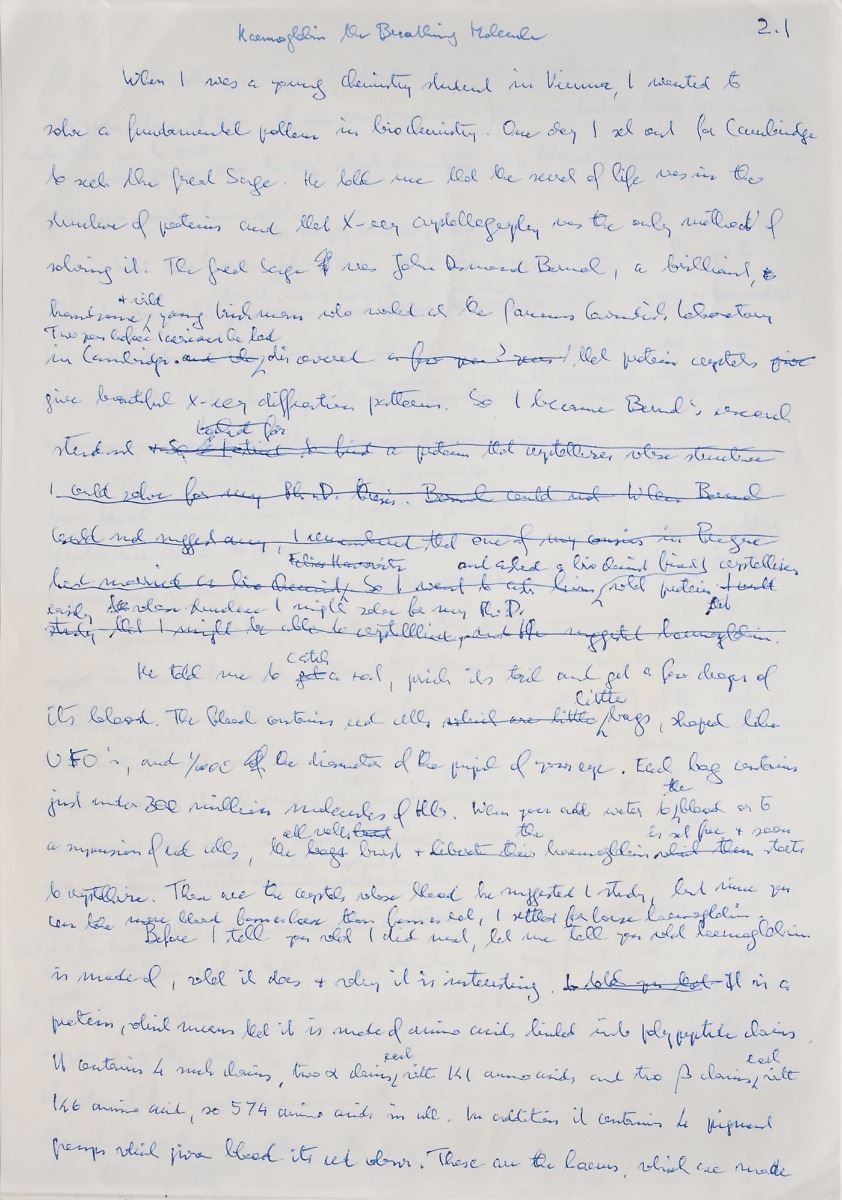 Haemoglobin the Breathing Molecule
2.1
When I was a young chemistry student in Vienna, I wanted to
solve a fundamental problem in biochemistry. One day I set out for Cambridge
to seek the Great Sage. He told me that the secret of life was in the
structure of proteins and that X-ray crystallography was the only method of
solving it. The Great Sage was John Desmond Bernal, a brilliant,
+ wild
handsome, young Irishman who worked at the famous Cavendish Laboratory
Two years before I arrived he had
in Cambridge. and he discovered a few years that protein crystals give
give beautiful X-ray diffraction patterns. So I became Bernal's research
looked for
student + So I to find a protein that crystallizes whose structure
I could solve for my Ph.D. thesis. Bernal could not When Bernal
could not suggest any, I remembered that one of my cousins in Prague
Felix Haurowitz and asked a biochemist friend crystallises
had married a biochemist, So I went to ask him, what protein I could
easily whose structure I might solve for my Ph.D.
study, that I might be able to crystallise, and he suggested haemoglobin.
catch
He told me to get a rat, prick its tail and get a few drops of
little
its blood. The blood contains red cells which are little bags, shaped like
UFO's, and 1/1000 of the diameter of the pupil of your eye. Each bag contains
the
just under 300 million molecules of Hb. When you add water to blood or to
all walls the is set free + soon
a suspension of red cells, the bags burst + liberate their haemoglobin which then starts
to crystallise. These are the crystals whose blood he suggested I study, but since you
can take more blood from a horse than from a rat, I settled for horse haemoglobin.
Before I tell you what I did next, let me tell you what haemoglobin
is made of, what it does + why it is interesting. I told you that It is a
protein, which means that it is made of amino acids linked into polypeptide chains
each each
It contains 4 such chains, two α chains, with 141 amino acids and two β chains, with
146 amino acid, so 574 amino acids in all. In addition it contains 4 pigment
groups which give blood its red colour. These are the haems, which are made